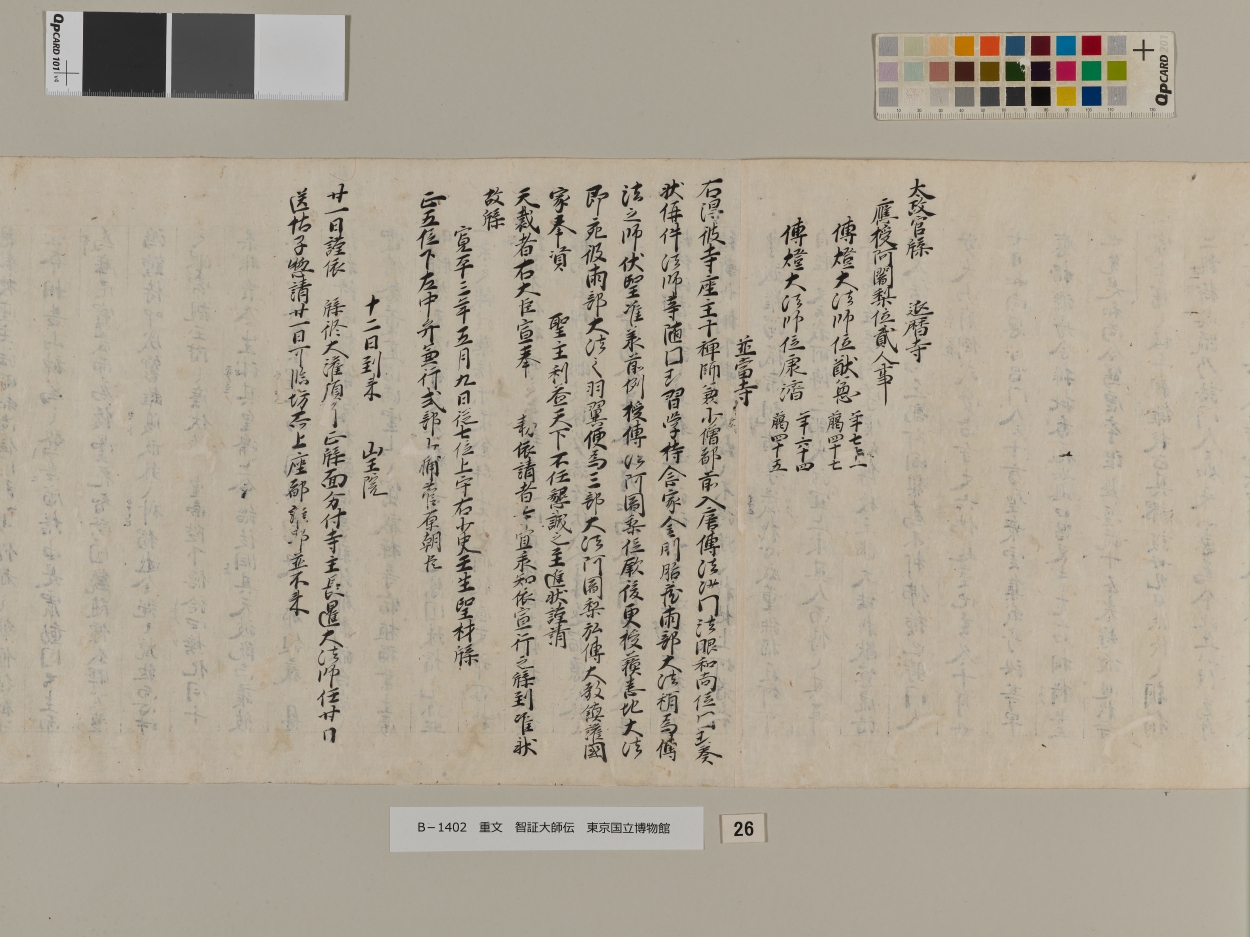 太政官牒　延暦寺
應授阿闍梨位貳人事
傳燈大法師位猷憲 年七十一 﨟四十七
傳燈大法師位康濟 年六十四 﨟四十五
並當寺
右得彼寺座主十禪師兼少僧都前入唐傳法沙門法眼和尚位 奏
状偁件法師等随 習学持念家金剛胎蔵両部大法稍為傳
法之師伏望准承前例授傳法阿闍梨位厥後更授蘇悉地大法
即宛彼両部大法之羽翼便為三部大法阿闍梨弘傳大教鎮護國
家奉資　聖主利益天下不任懇誠之至進状謹請
天裁者右大臣宣奉　勅依請者寺宜承知依宣行之牒到准状
故牒
寛平三年五月九日従七位上守右少史壬生望材牒
正五位下左中弁兼行式部少輔藤原朝臣
十二日到来　山王院
廿一日謹依　牒修大灌頂 正牒面分付寺主長暹大法師任廿日
送帖子惣請廿一日可臨坊 上座都 並不来
B－1402　重文　智証大師伝　東京国立博物館
26
QPCARD 101 v4
QPCARD 201